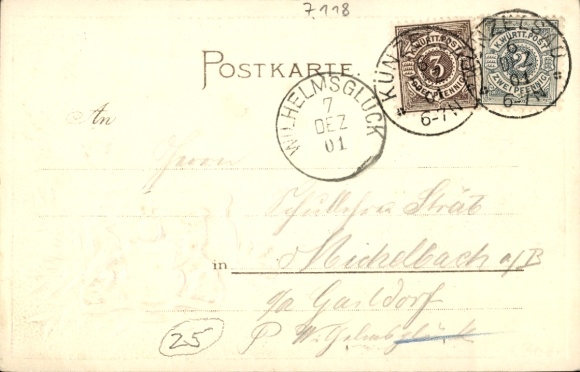 7118
POSTKARTE.
K. WÜRTT. POST
3
DREI PFENNIG
K. WÜRTT. POST
2
ZWEI PFENNIG
KÜNZELSAU
6
DEZ
01
6-7N
KÜNZELSAU
6
DEZ
01
6-7N
WILHELMSGLÜCK
7
DEZ
01
An
Herrn
Schullehrer Sträb
in Michelbach a/B
Gaildorf
P Wilhelmsglück
25